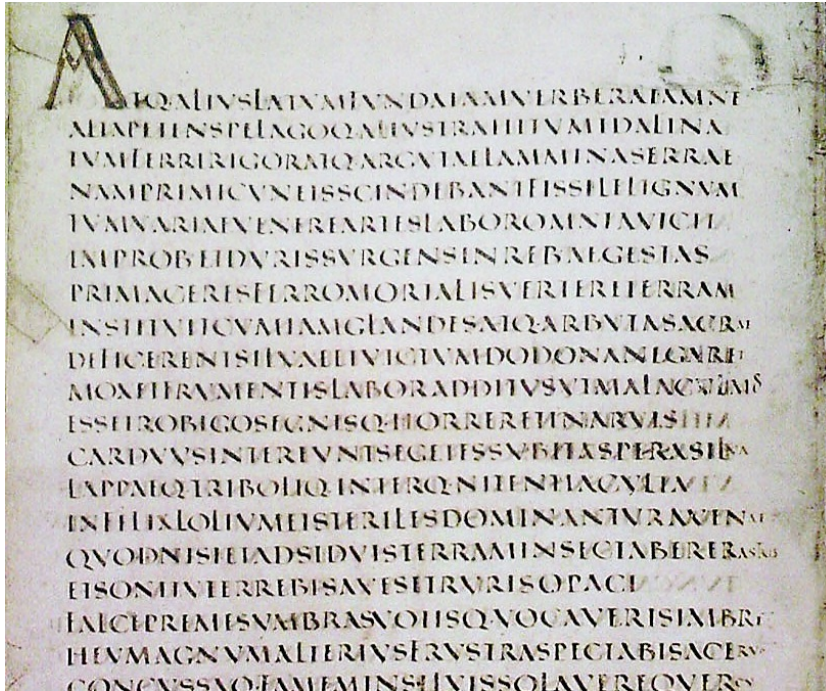 ATQ·ALIVSLATVMFVNDAIAMVERBERATAMNE
ALTAPETENSPELAGOQ·ALIVSTRAHITVMIDALINA
TVMFERRIRIGORATQ·ARGVTAELAMMINASERRAE
NAMPRIMICVNEISSCINDEBANTFISSILELIGNVM
TVMVARIAEVENEREARTESLABOROMNIAVICIT
IMPROB·ETDVRISSVRGENSINREB·AEGESTAS
PRIMACERESFERROMORTALISVERTERETERRAM
INSTITVITCVMIAMGLANDESATQ·ARBVTASACRAE
DEFICERENTSILVAEETVICTVMDODONANEGARET
MOXETFRVMENTISLABORADDITVSVTMALACVLMOS
ESSETROBIGOSEGNISQ·HORRERETINARVIS
CARDVVSINTEREVNTSEGETESSVBITASPERASILVA
LAPPAEQ·TRIBOLIQ·INTERQ·NITENTIACVLTA
INFELIXLOLIVMETSTERILESDOMINANTVRAVENAE
QVODNISIETADSIDVISTERRAMINSECTABERERASTRIS
ETSONITVTERREBISAVESETRVRISOPACI
FALCEPREMESVMBRASVOTISQ·VOCAVERISIMBRE
HEVMAGNVMALTERIVSFRVSTRASPECTABISACERVO
CONCVSSAQ·FAMEMINSILVISSOLAVEREQVERCV